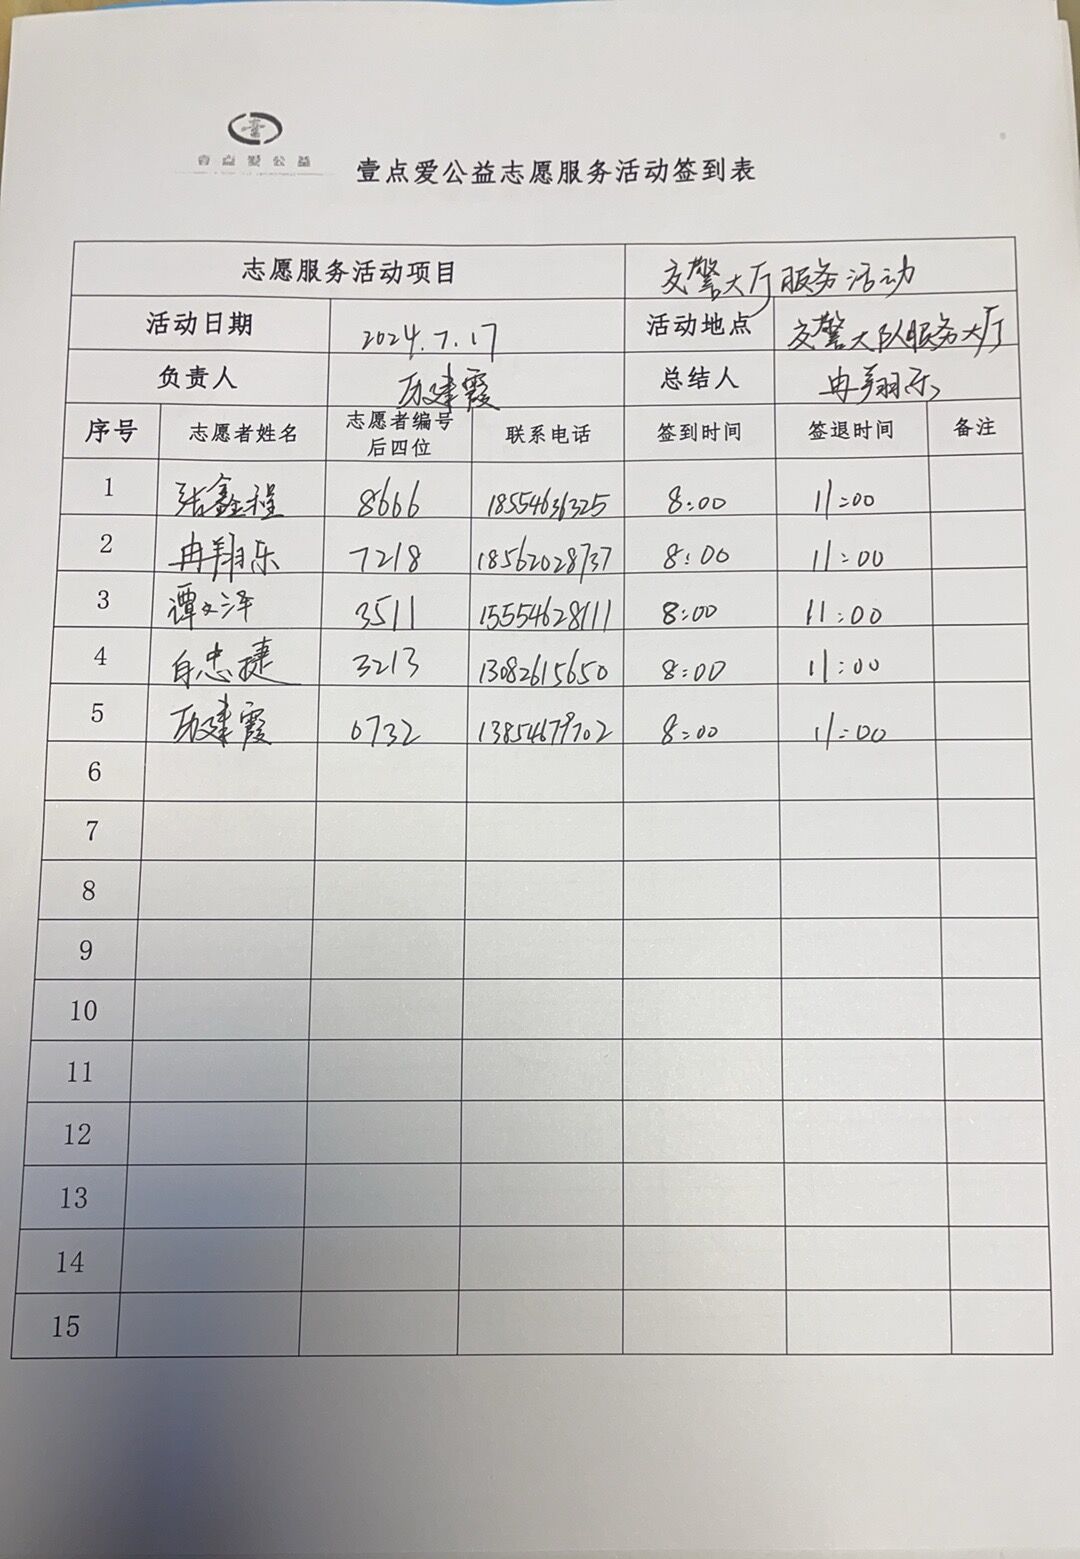 壹点爱公益
壹点爱公益志愿服务活动签到表
志愿服务活动项目 交警大厅服务活动
活动日期 2024.7.17 活动地点 交警大队服务大厅
负责人 建霞 总结人 冉翔乐
序号 志愿者姓名 志愿者编号 联系电话 签到时间 签退时间 备注
后四位
1 张鑫程 8666 18554636325 8:00 11:00
2 冉翔乐 7218 18562028737 8:00 11:00
3 谭文泽 3511 15554628111 8:00 11:00
4 忠捷 3213 13082615650 8:00 11:00
5 建霞 0732 13854679702 8:00 11:00
6
7
8
9
10
11
12
13
14
15